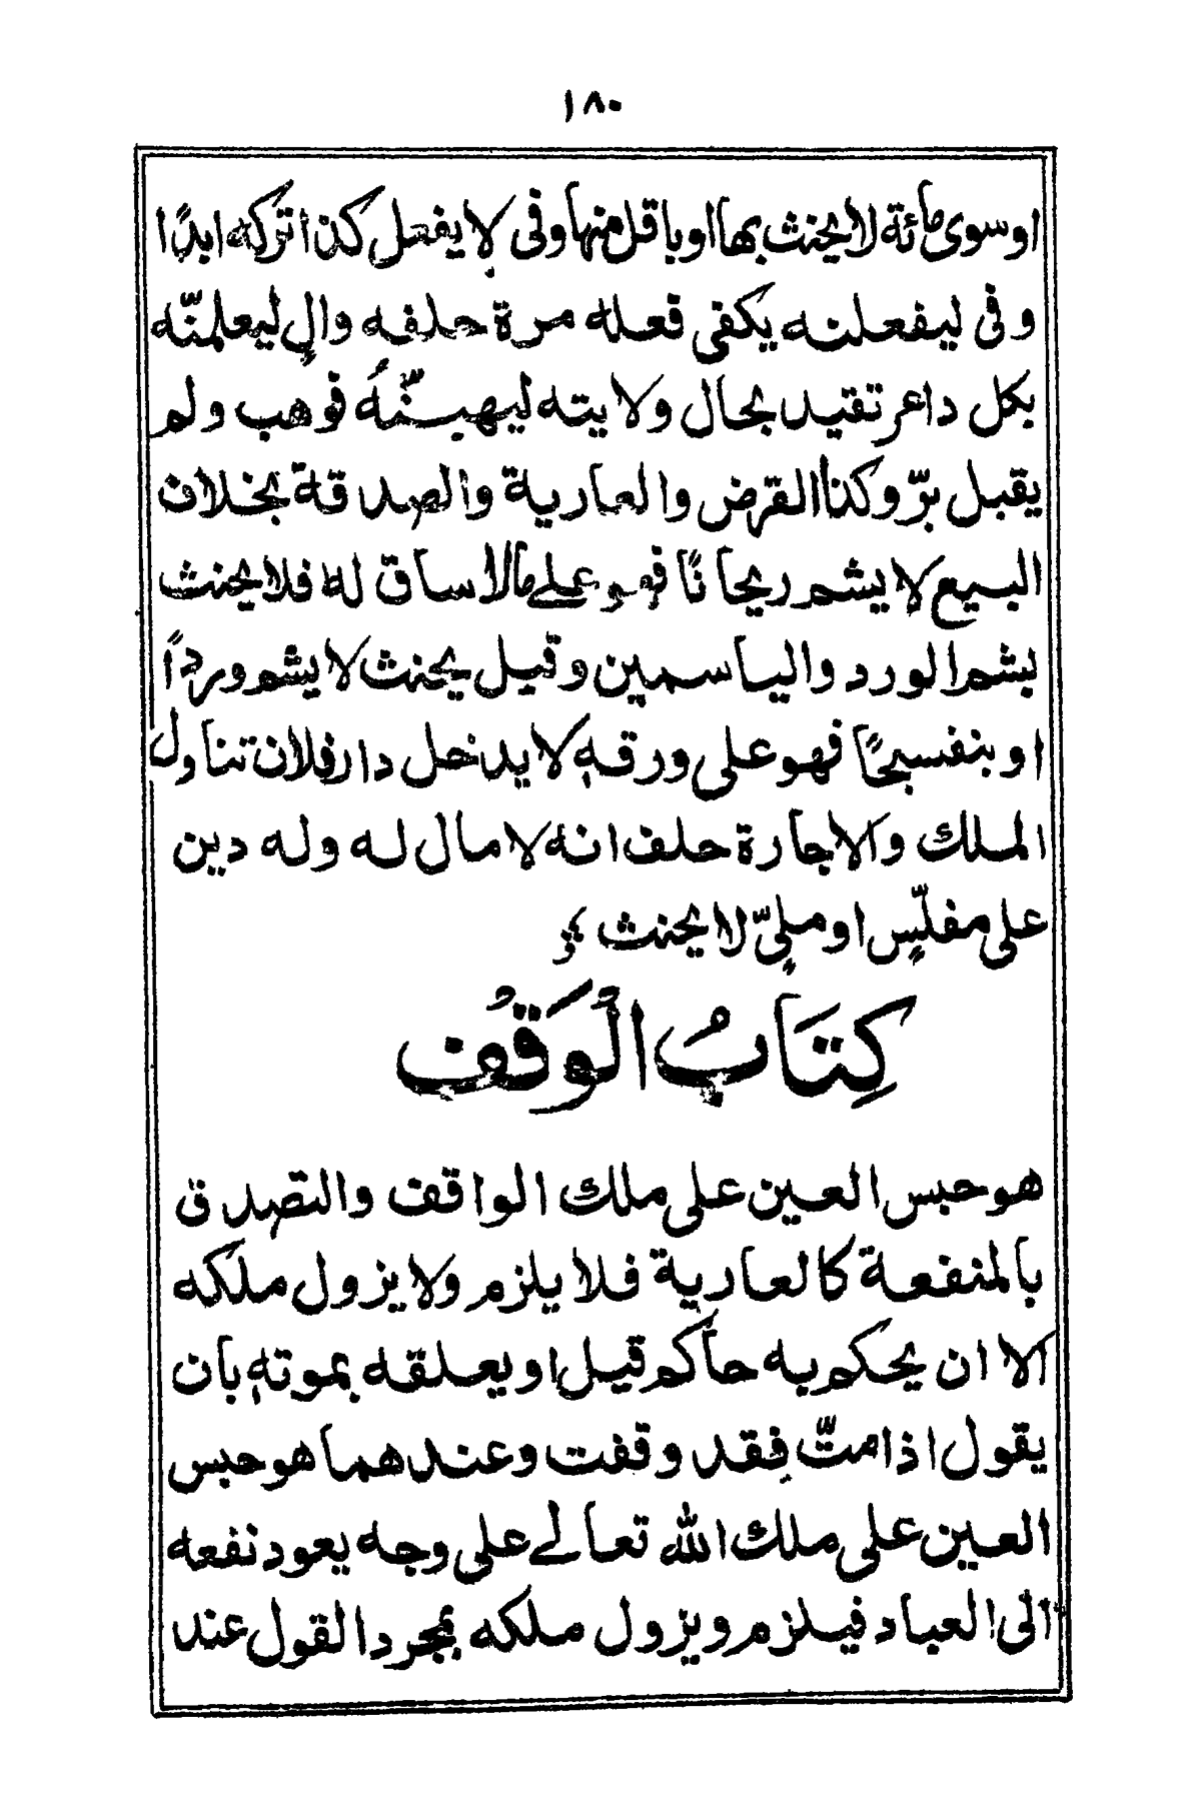 ١٨٠
او سوى مائة لا يحنث بها او باقل منها وفى لا يفعل كذا تركه ابدًا
وفى ليفعلنه يكفى فعله مرة حلفه والٍ ليعلمنّه
بكل داعر تقيد بحال ولايته ليهبنّهُ فوهب ولم
يقبل برّ وكذا القرض والعارية والصدقة بخلاف
البيع لا يشم ريحانًا فهو على مالا ساق له فلا يحنث
بشم الورد والياسمين وقيل يحنث لا يشم وردًا
او بنفسجًا فهو على ورقه لا يدخل دار فلان تناول
الملك والاجارة حلف انه لا مال له وله دين
على مفلّسٍ او ملىٍّ لا يحنث
كِتَابُ الْوَقْف
هو حبس العين على ملك الواقف والتصدق
بالمنفعة كالعارية فلا يلزم ولا يزول ملكه
الا ان يحكم به حاكم قيل او يعلقه بموتهٖ بان
يقول اذا متّ فقد وقفت وعندهما هو حبس
العين على ملك الله تعالى على وجه يعود نفعه
الى العباد فيلزم ويزول ملكه بمجرد القول عند